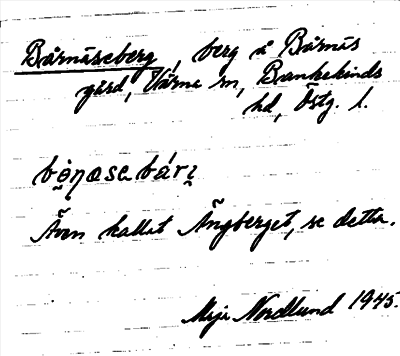 Bårnäseberg, berg å Bårnäs
gård, Värna sn, Bankekinds
hd, Östg. l.
Även kallat Ängberget, se detta.
Maja Nordlund 1945.